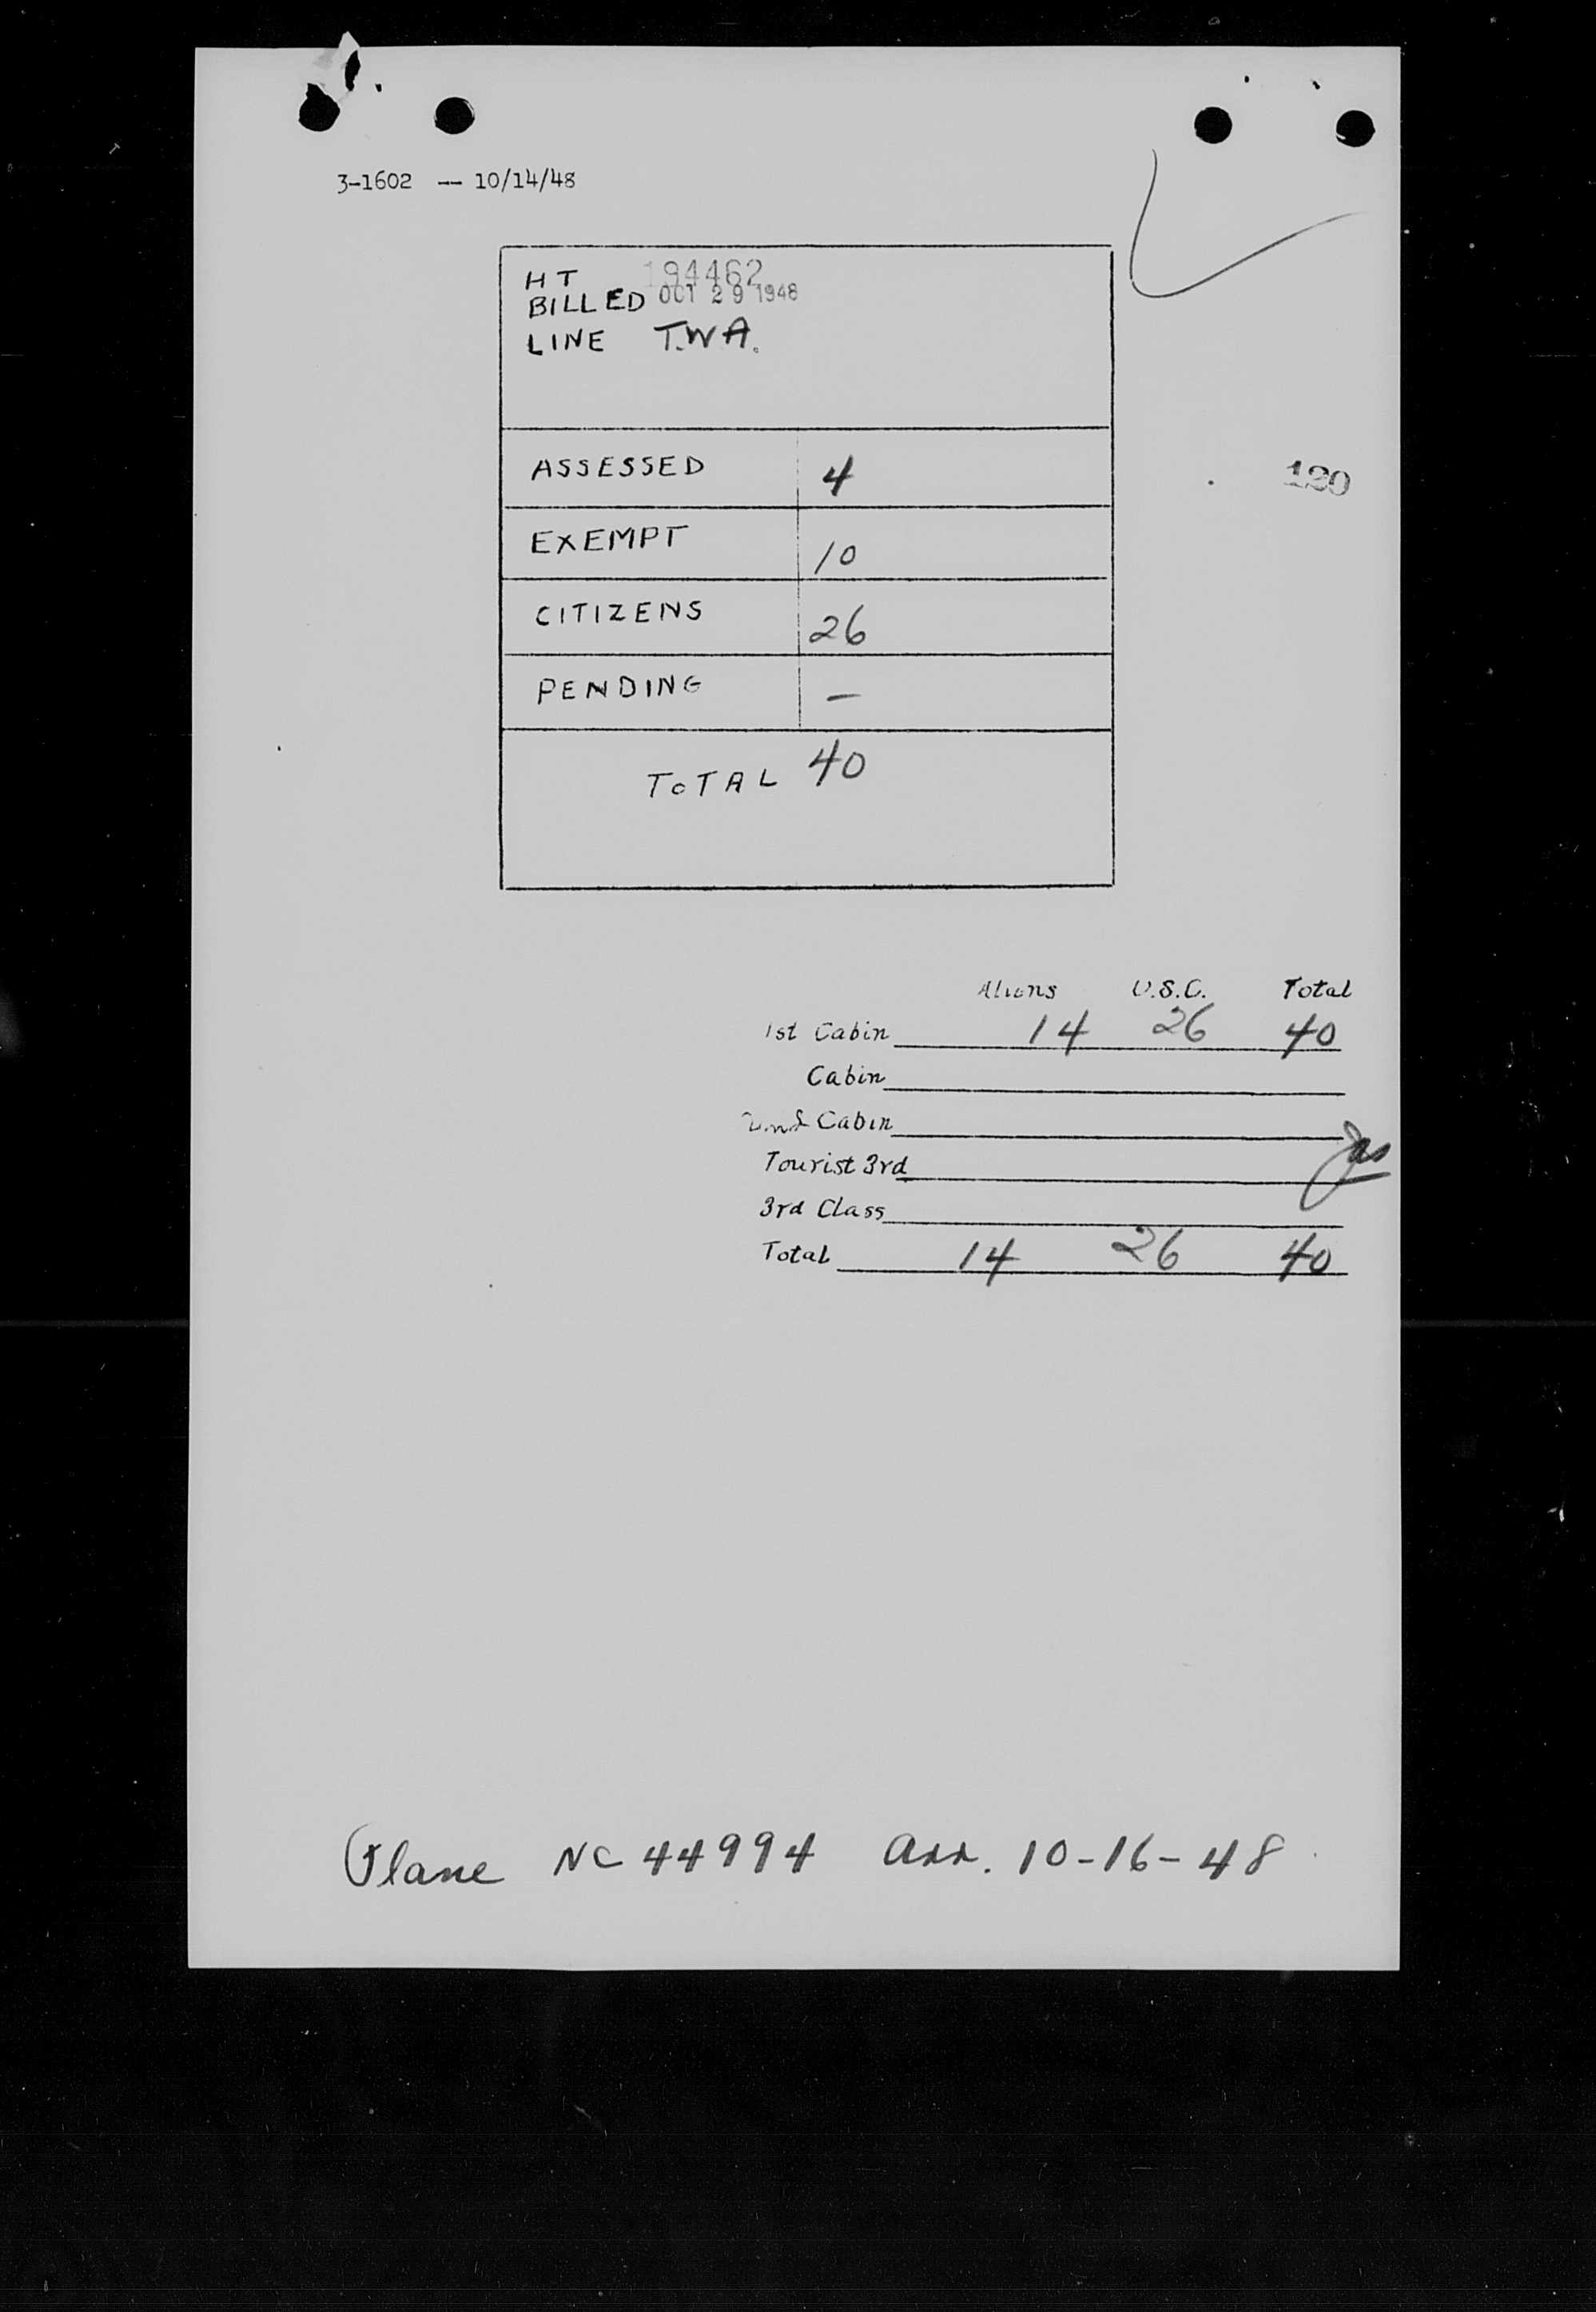 3-1602 -- 10/14/48
HT 194462
BILLED OCT 29 1948
LINE T.W.A.
ASSESSED 4
120
EXEMPT 10
CITIZENS 26
PENDING —
TOTAL 40
Aliens U.S.C. Total
1st Cabin 14 26 40
Cabin
2nd Cabin
Tourist 3rd
3rd Class
Total 14 26 40
Plane NC 44994 arr. 10-16-48